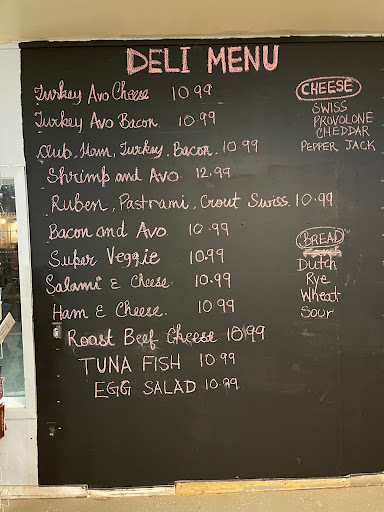 DELI MENU
Turkey Avo Cheese 10.99
Turkey Avo Bacon 10.99
Club, Ham, Turkey, Bacon. 10.99
Shrimp and Avo. 12.99
Ruben, Pastrami, Crout Swiss. 10.99
Bacon and Avo. 10.99
Super Veggie 10.99
Salami & Cheese. 10.99
Ham & Cheese. 10.99
Roast Beef Cheese 10.99
TUNA FISH 10.99
EGG SALAD 10.99
CHEESE
SWISS
PROVOLONE
CHEDDAR
PEPPER JACK
BREAD
Dutch
Rye
Wheat
Sour